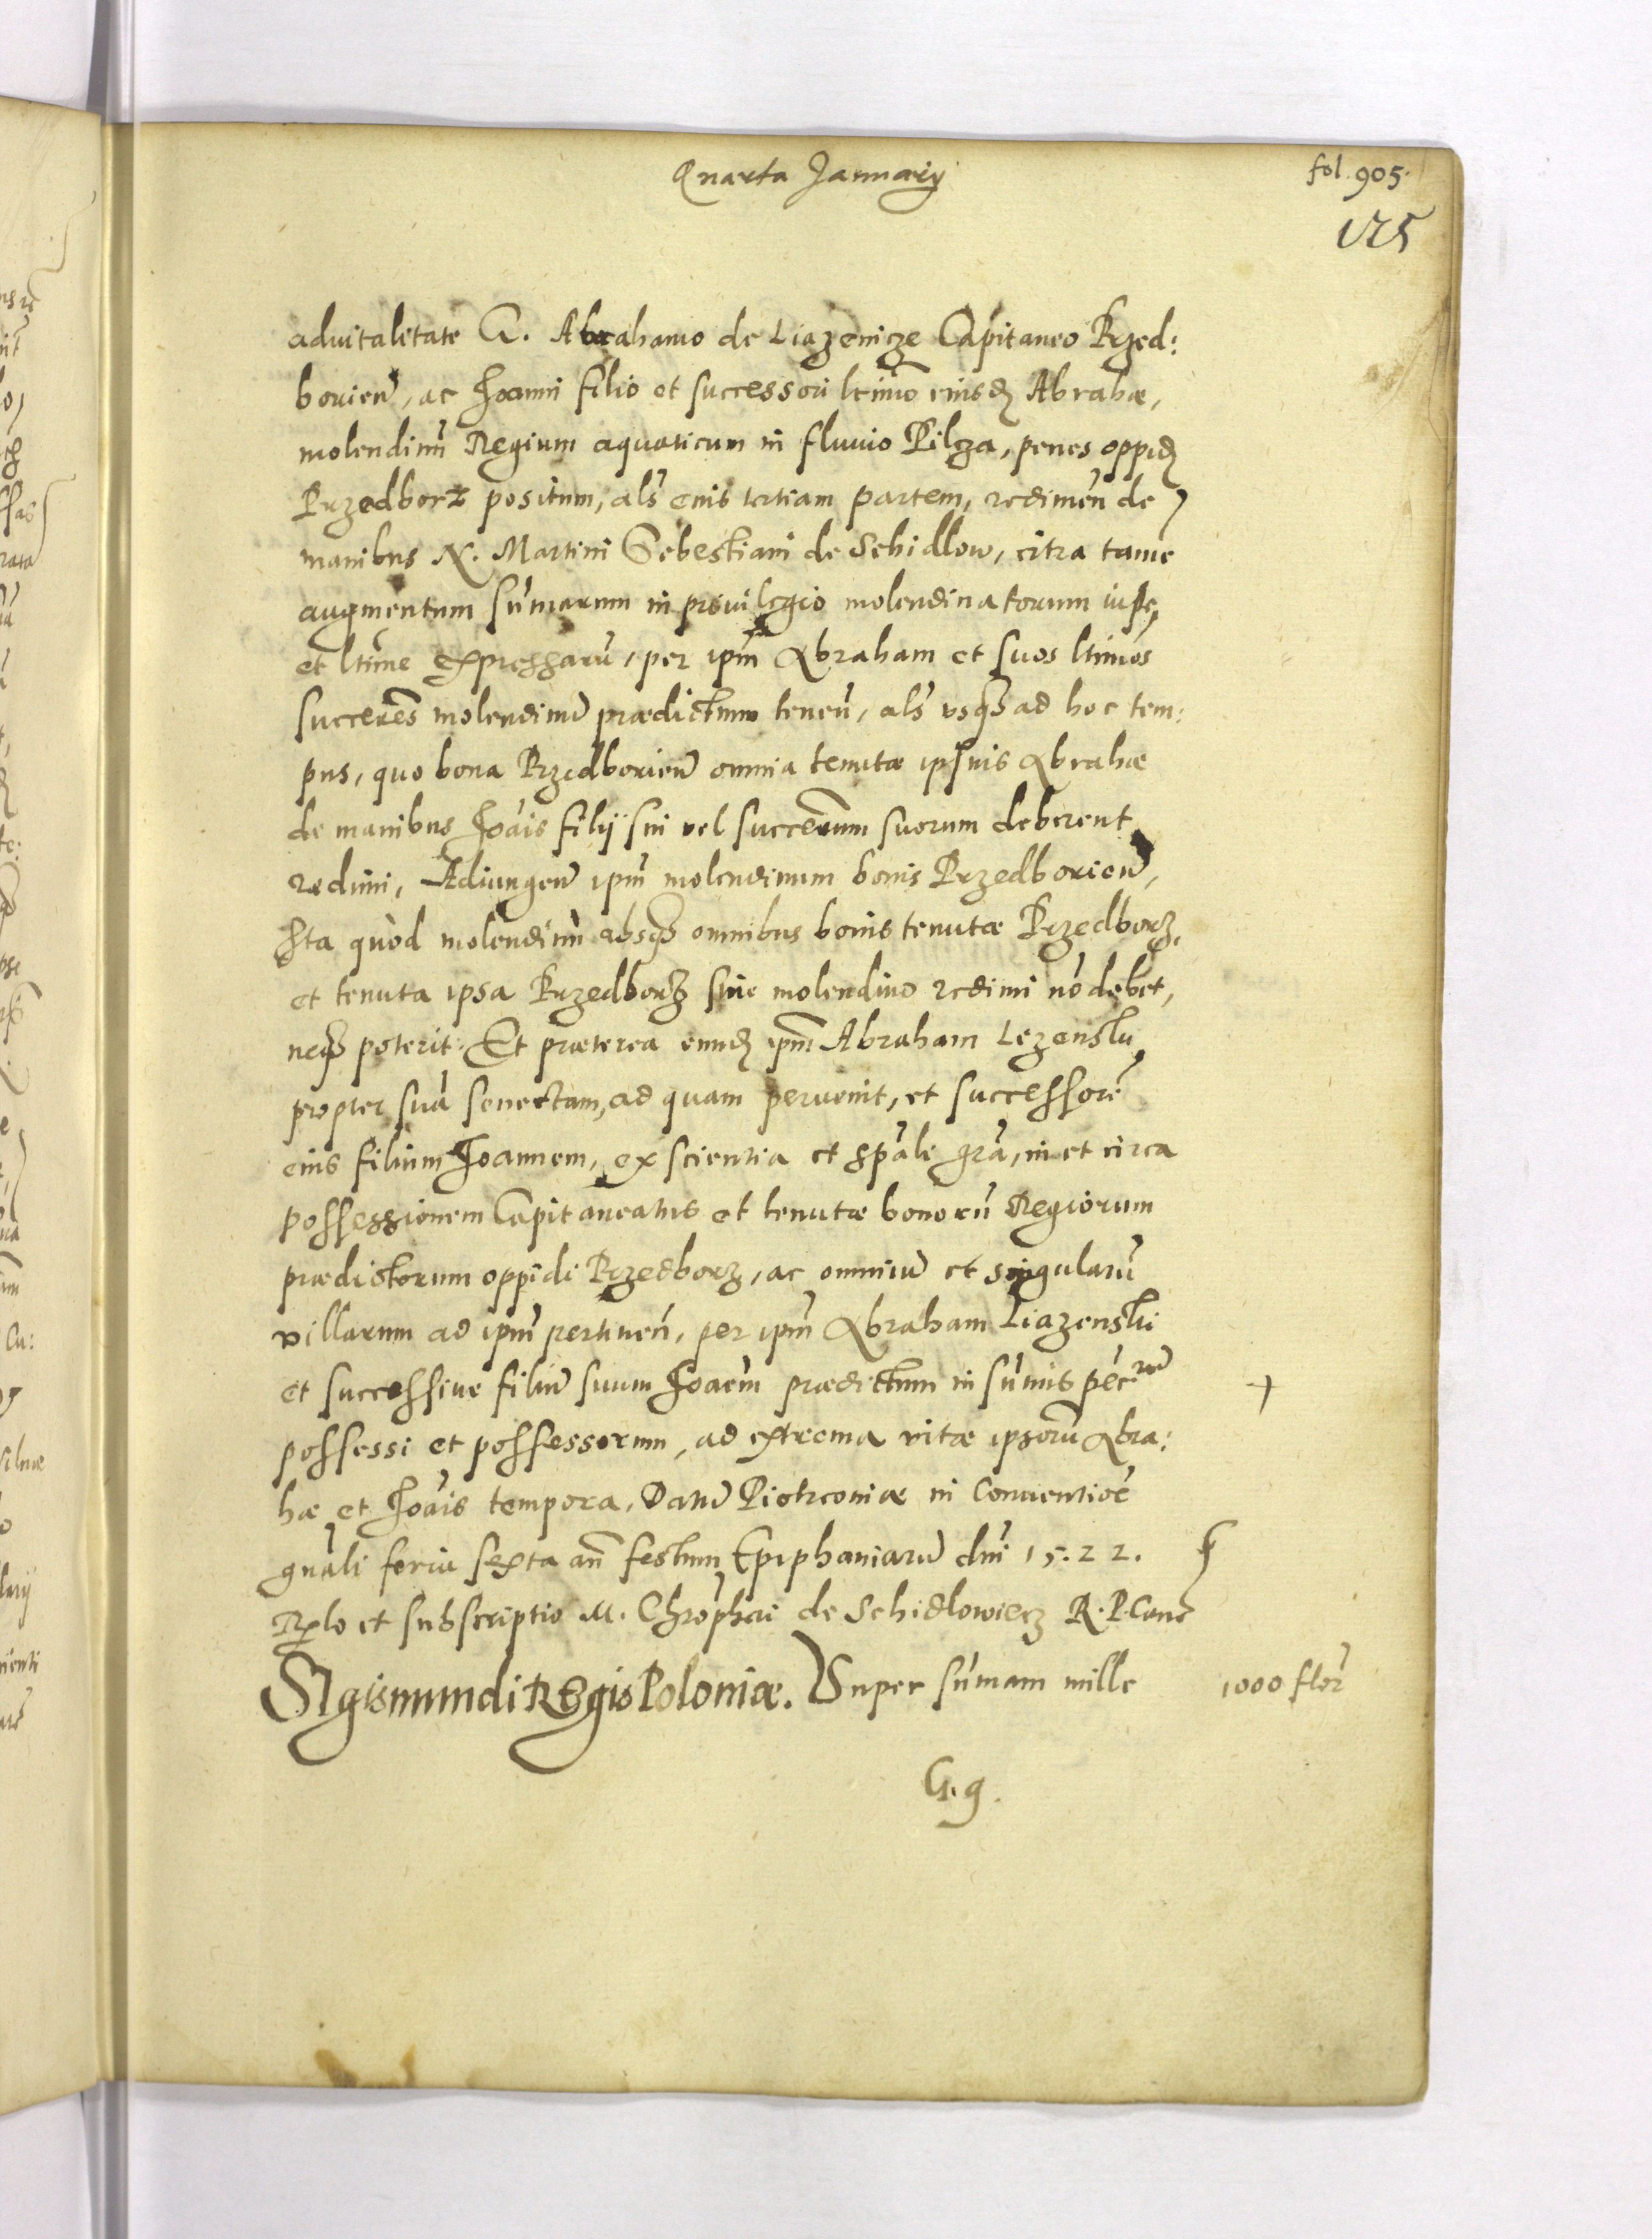 Quarta Januarij
fol. 905.
175
aduitalitatē G. Abrahamo de Liazenicze Capitaneo Przed:
borien̄, ac Joanni filio et successori ltimo eiusdꝫ Abrahæ,
molendinū Regium aquaticum in fluuio Pilcza, penes oppidꝫ
Przedborz positum, als̄ eius tertiam partem, redimen̄ de
manibus N. Martini Sebestiani de Schidlow, citra tamē
augmentum sūmarum in priuilegio molendinatorum iuste,
et ltime expressarū, per ipm̄ Abraham et suos ltimos
succeres̄ molendinū prædictum tenen̄, als̄ vsqꝫ ad hoc tem:
pus, quo bona Przedborien̄ omnia tenutæ ipsius Abrahæ
de manibus Joais̄ filij sui vel succerum̄ suorum deberent
redimi, Adiungen̄ ipm̄ molendinum bonis Przedborien̄,
Ita quòd molendinū absqꝫ omnibus bonis tenutæ Przedborz,
et tenuta ipsa Przedborz sine molendino redimi nō debet,
neqꝫ poterit. Et præterea eundꝫ ipm̄ Abraham Lezenski
propter suā senectam, ad quam peruenit, et successorē
eius filium Joannem, ex scientia et spāli grā, in et circa
possessionem Capitaneatus et tenutæ bonorū Regiorum
prædictorum oppidi Przedborz, ac omniū et singularū
villarum ad ipm̄ pertinen̄, per ipm̄ Abraham Liazenski
et successiue filiū suum Joaem̄ prædictum in sūmis pec̄rū
possessi et possessorum, ad extrema vitæ ipsorū Abra:
hæ et Joais̄ tempora, Datū Piotrconiæ in Conuentioē
gnāli feria sexta an̄ festum Epiphaniarū dnī 1522.
Rlo et subscriptio M. Chrophori de Schidlowiecz R. P. Canc
SIgismundi REgis Poloniæ. Super sūmam mille
1000 flor̄
G. g.